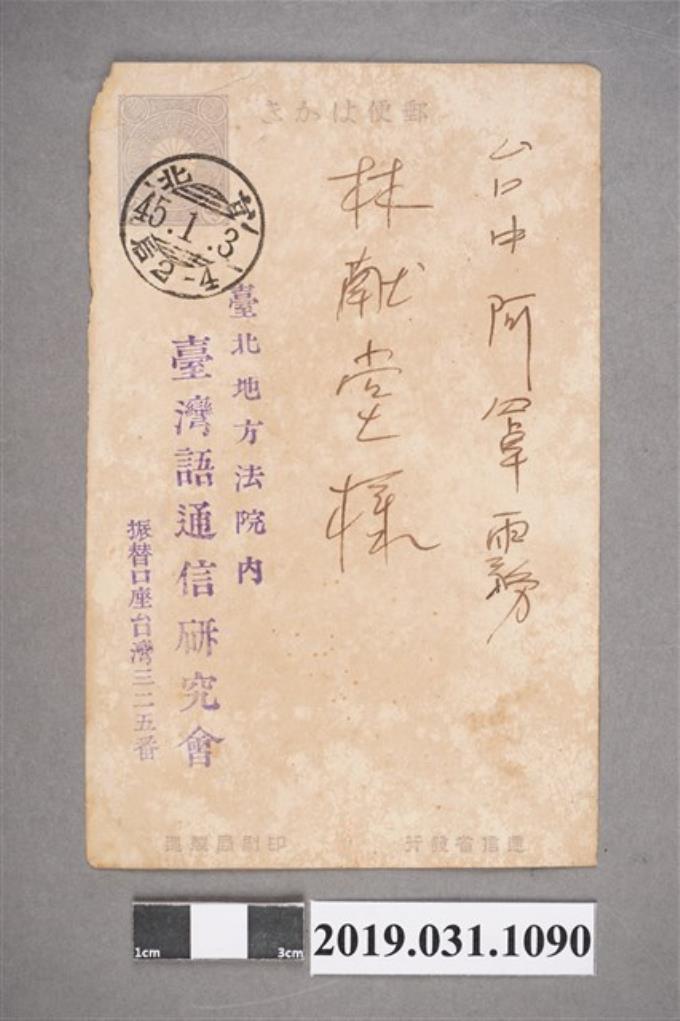 郵便はかき
台中阿罩霧
林献堂様
臺北
45.1.3
后2-4
臺北地方法院內
臺灣語通信研究會
振替口座台灣三二五番
遞信省發行
印刷局製造
1cm
3cm
2019.031.1090